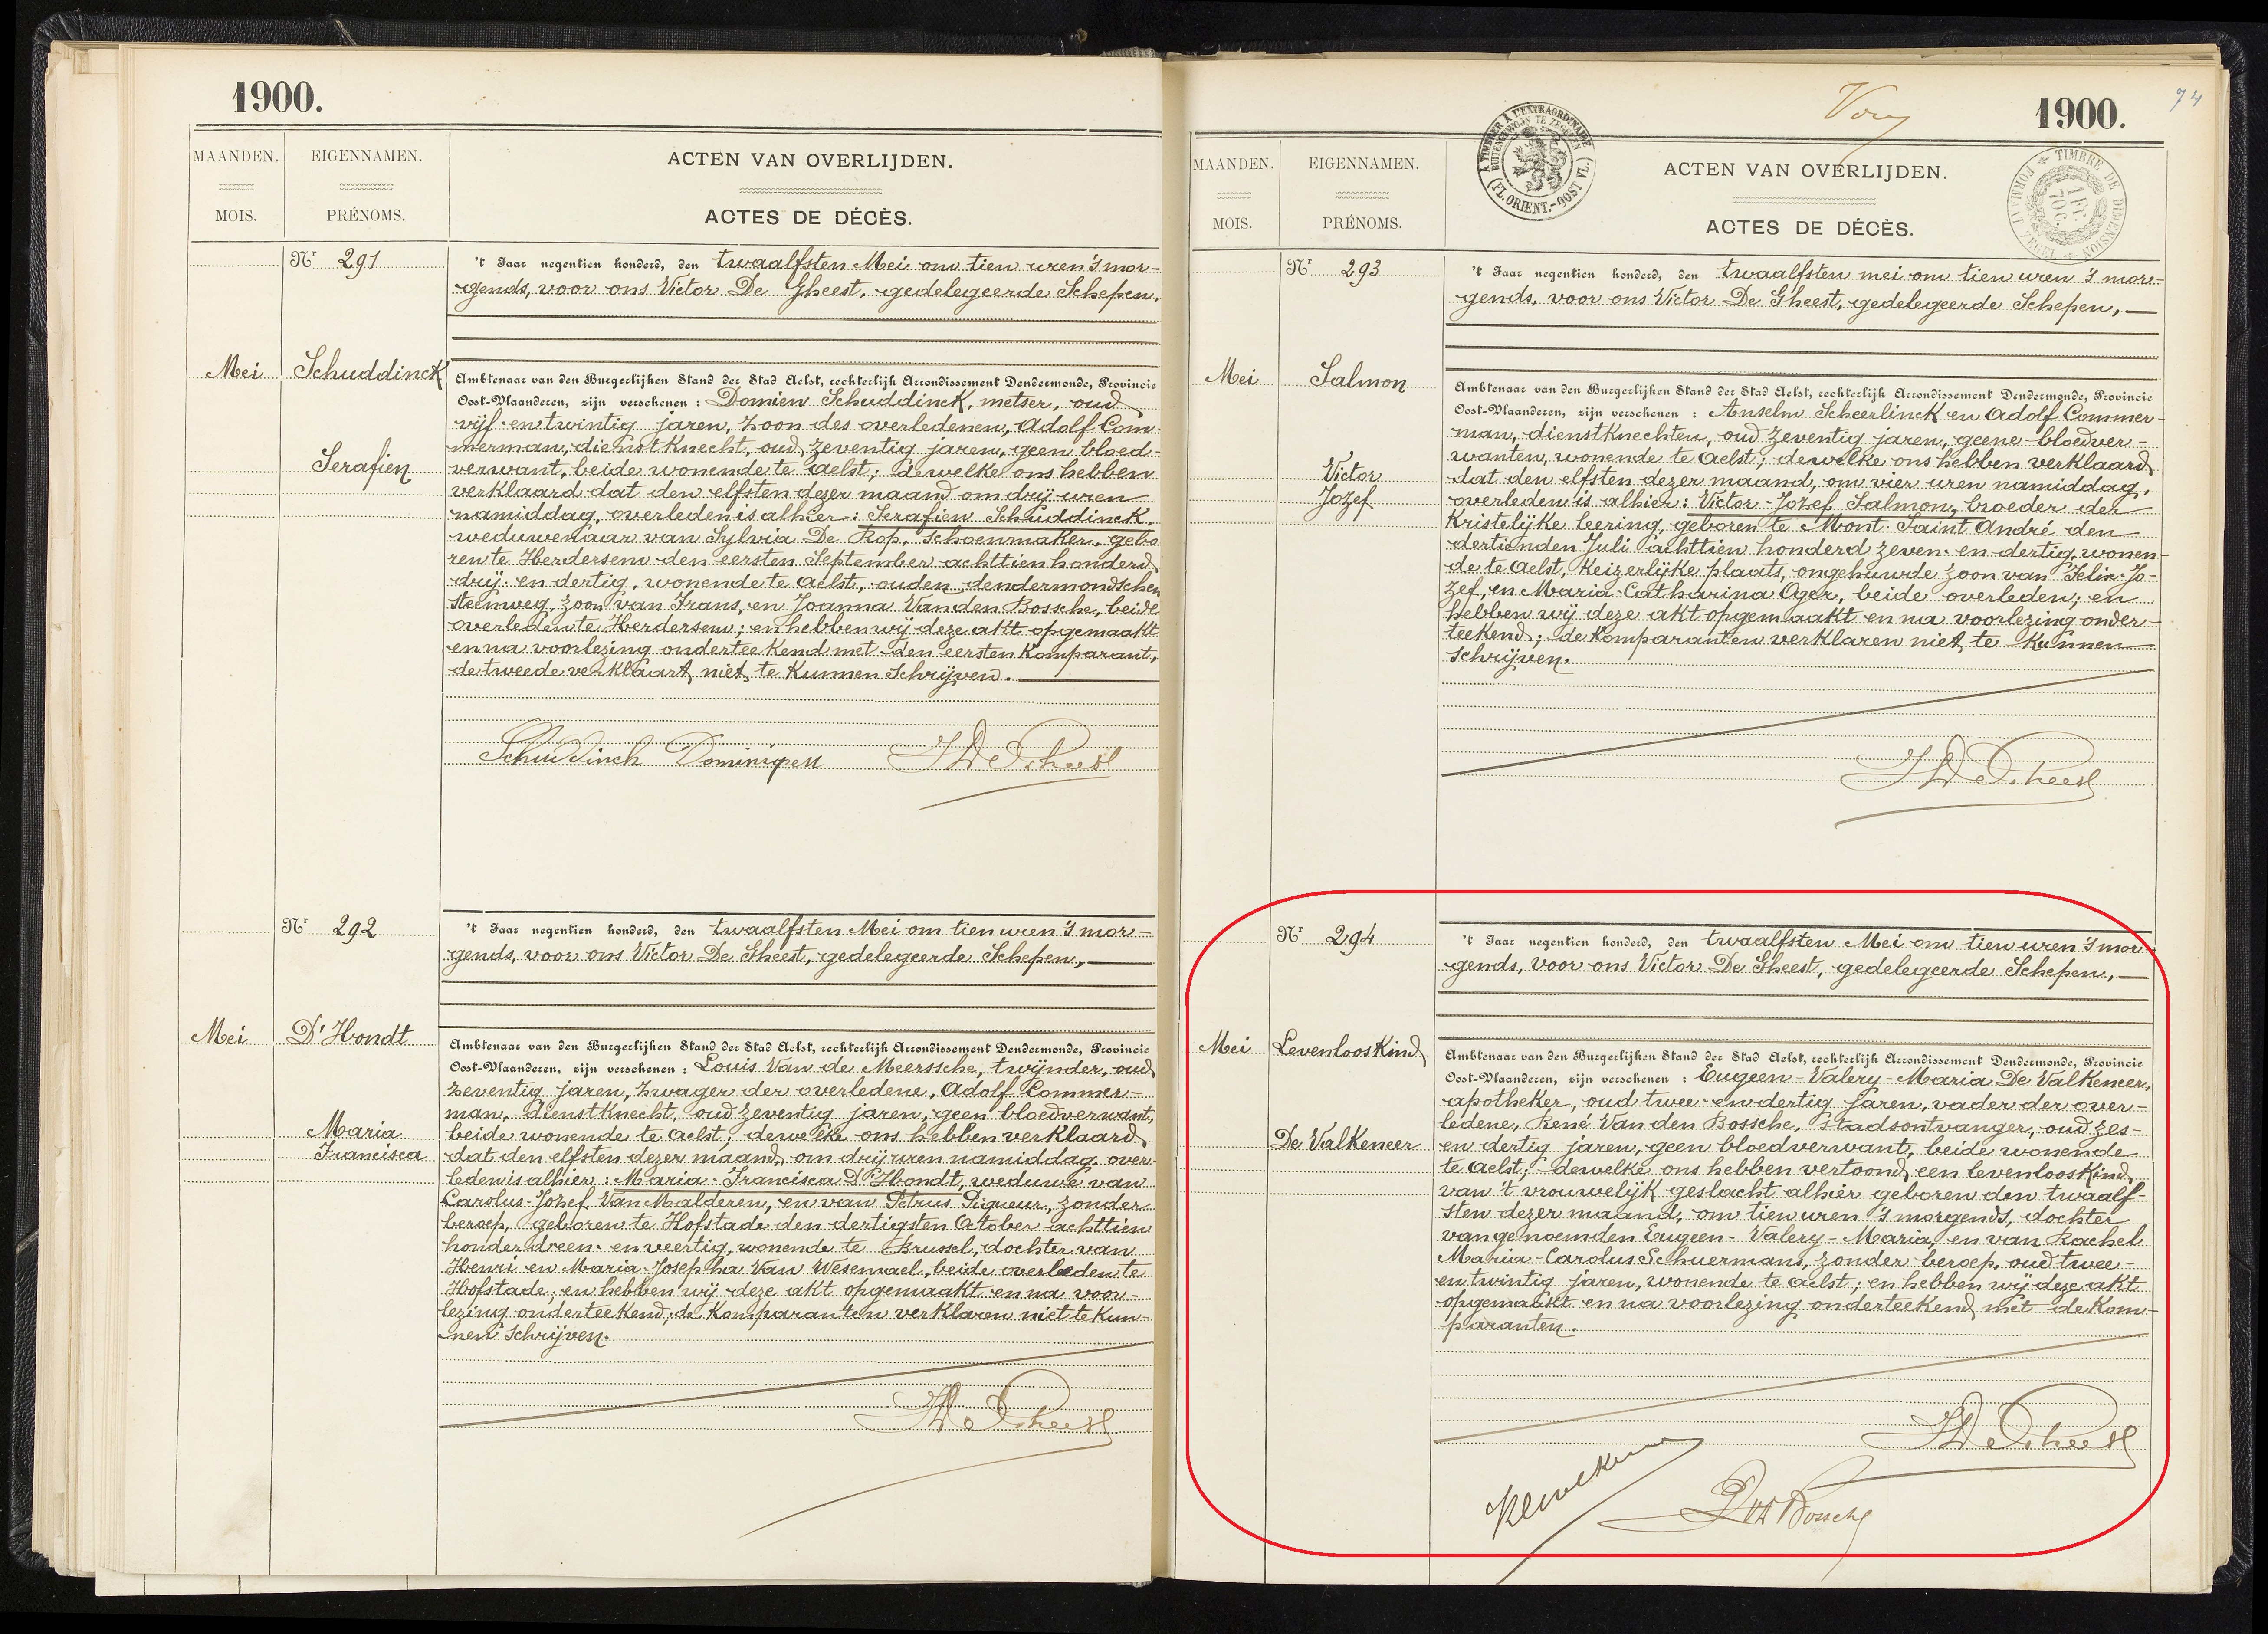 1900.
MAANDEN.
MOIS.
EIGENNAMEN.
PRÉNOMS.
ACTEN VAN OVERLIJDEN.
ACTES DE DÉCÈS.
Nr 291
Mei
Schuddinck
Serafien
't Jaar negentien honderd, den twaalfsten Mei om tien uren 's mor-
gends, voor ons Victor De Gheest, gedelegeerde Schepen,
Ambtenaar van den Burgerlijken Stand der Stad Aelst, rechterlijk Arrondissement Dendermonde, Provincie
Oost-Vlaanderen, zijn verschenen : Domien Schuddinck, metser, oud
vijf-en twintig jaren, zoon des overledenen, Adolf Com-
merman, dienstknecht, oud zeventig jaren, geen bloed-
verwant, beide wonende te Aelst; dewelke ons hebben
verklaard dat den elfsten dezer maand om drij uren
namiddag, overleden is alhier : Serafien Schuddinck,
weduwenaar van Sylvia De Rop, Schoenmaker, gebo
ren te Herdersem den eersten September achttien honderd
drij-en dertig, wonende te Aelst, ouden dendermondschen
steenweg, zoon van Frans, en Joanna Vanden Bossche, beide
overleden te Herdersem; en hebben wij deze akt opgemaakt
en na voorlezing onderteekend met den eersten Komparant,
de tweede verklaart niet te kunnen Schrijven.
Schuddinck Dominique
V De Gheest
Nr 292
Mei
D'Hondt
Maria
Francisca
't Jaar negentien honderd, den twaalfsten Mei om tien uren 's mor-
gends, voor ons Victor De Gheest, gedelegeerde Schepen,
Ambtenaar van den Burgerlijken Stand der Stad Aelst, rechterlijk Arrondissement Dendermonde, Provincie
Oost-Vlaanderen, zijn verschenen : Louis Van de Meerssche, twijnder, oud
zeventig jaren, zwager der overledene, Adolf Commer-
man, dienstknecht, oud zeventig jaren, geen bloedverwant,
beide wonende te Aelst; dewelke ons hebben verklaard
dat den elfsten dezer maand, om drij uren namiddag over-
leden is alhier : Maria-Francisca D'Hondt, weduwe van
Carolus-Jozef Van Malderen, en van Petrus Piqueur, zonder
beroep, geboren te Hofstade den dertigsten October achttien
honderd een-en veertig, wonende te Brussel, dochter van
Henri en Maria-Josepha Van Wesemael, beide overleden te
Hofstade; en hebben wij deze akt opgemaakt en na voor-
lezing onderteekend; de Komparanten verklaren niet te kun-
nen Schrijven.
V De Gheest
74
1900.
A TIMBRER A L'EXTRAORDINAIRE
BUITENGEWOON TE ZEGELEN
(FL. ORIENT.-OOST VL.)
TIMBRE DE DIMENSION
FORMAAT ZEGEL
1 FR.
70 C.
MAANDEN.
MOIS.
EIGENNAMEN.
PRÉNOMS.
ACTEN VAN OVERLIJDEN.
ACTES DE DÉCÈS.
Nr 293
Mei
Salmon
Victor
Jozef
't Jaar negentien honderd, den twaalfsten mei om tien uren 's mor-
gends, voor ons Victor De Gheest, gedelegeerde Schepen,
Ambtenaar van den Burgerlijken Stand der Stad Aelst, rechterlijk Arrondissement Dendermonde, Provincie
Oost-Vlaanderen, zijn verschenen : Anselm Scheerlinck en Adolf Commer-
man, dienstknechten, oud zeventig jaren, geene bloedver-
wanten, wonende te Aelst; dewelke ons hebben verklaard
dat den elfsten dezer maand, om vier uren namiddag,
overleden is alhier : Victor-Jozef Salmon, broeder der
Kristelijke leering, geboren te Mont-Saint André den
dertienden Juli achttien honderd zeven-en-dertig, wonen-
de te Aelst, Keizerlijke plaats, ongehuwde zoon van Felix-Jo-
zef, en Maria-Catharina Oger, beide overleden; en
hebben wij deze akt opgemaakt en na voorlezing onder-
teekend; de Komparanten verklaren niet te kunnen
Schrijven.
V De Gheest
Nr 294
Mei
Levenloos Kind
De Valkeneer
't Jaar negentien honderd, den twaalfsten Mei om tien uren 's mor-
gends, voor ons Victor De Gheest, gedelegeerde Schepen,
Ambtenaar van den Burgerlijken Stand der Stad Aelst, rechterlijk Arrondissement Dendermonde, Provincie
Oost-Vlaanderen, zijn verschenen : Eugeen-Valery-Maria De Valkeneer,
apotheker, oud twee-en dertig jaren, vader der over-
ledene, René Van den Bossche, Stadsontvanger, oud zes-
en dertig jaren, geen bloedverwant, beide wonende
te Aelst; dewelke ons hebben vertoond een levenloos Kind
van 't vrouwelijk geslacht alhier geboren den twaalf-
sten dezer maand, om tien uren 's morgends, dochter
van genoemden Eugeen-Valery-Maria, en van Rachel
Maria-Carolus Schuermans, zonder beroep, oud twee-
en twintig jaren, wonende te Aelst; en hebben wij deze akt
opgemaakt en na voorlezing onderteekend met de Kom-
paranten.
V De Gheest